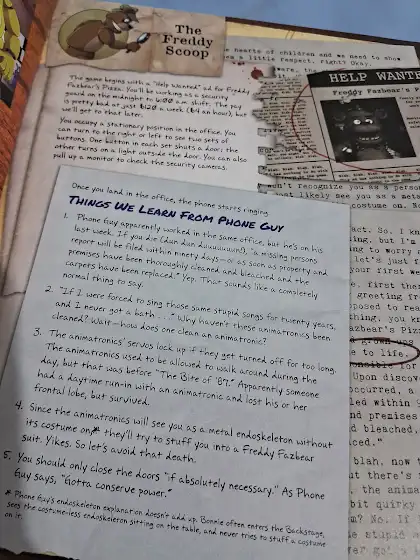 The
Freddy
Scoop
The game begins with a "Help Wanted" ad for Freddy
Fazbear's Pizza. You'll be working as a security
guard on the midnight to 6:00 a.m. shift. The pay
is pretty bad at just $120 a week ($4 an hour), but
we'll get to that later.
You occupy a stationary position in the office. You
can turn to the right or left to see two sets of
buttons. One button in each set shuts a door; the
other turns on a light outside the door. You can also
pull up a monitor to check the security cameras.
hearts of children and we need to show
a little respect, right? Okay.
HELP WANTED
Freddy Fazbear's Pizza
Once you land in the office, the phone starts ringing
THINGS WE LEARN FROM PHONE GUY
1. Phone Guy apparently worked in the same office, but he's on his
last week. If you die (dun dun duuuuuuns), "a missing persons
report will be filed within ninety days—or as soon as property and
premises have been thoroughly cleaned and bleached and the
carpets have been replaced." Yep. That sounds like a completely
normal thing to say.
2. "If I were forced to sing those same stupid songs for twenty years,
and I never got a bath . . ." Why haven't those animatronics been
cleaned? Wait—how does one clean an animatronic?
3. The animatronics' servos lock up if they get turned off for too long.
The animatronics used to be allowed to walk around during the
day, but that was before "The Bite of '87." Apparently someone
had a daytime run-in with an animatronic and lost his or her
frontal lobe, but survived.
4. Since the animatronics will see you as a metal endoskeleton without
its costume on,* they'll try to stuff you into a Freddy Fazbear
suit. Yikes. So let's avoid that death.
5. You should only close the doors "if absolutely necessary." As Phone
Guy says, "Gotta conserve power."
* Phone Guy's endoskeleton explanation doesn't add up. Bonnie often enters the Backstage,
sees the costume-less endoskeleton sitting on the table, and never tries to stuff a costume
on it.
won't recognize you as a person
costume on.
act. So, I know
but I'm
worry
let's just
your first week
first there
greeting
posed to read
thing, you know
azbear's Pizza
grown-ups
to life.
responsible for
Upon discov
occurred, a
led within 9
nd premises
d bleached,
aced."
blah, now
but there's
the anima
bit quirky
No. If
stupid